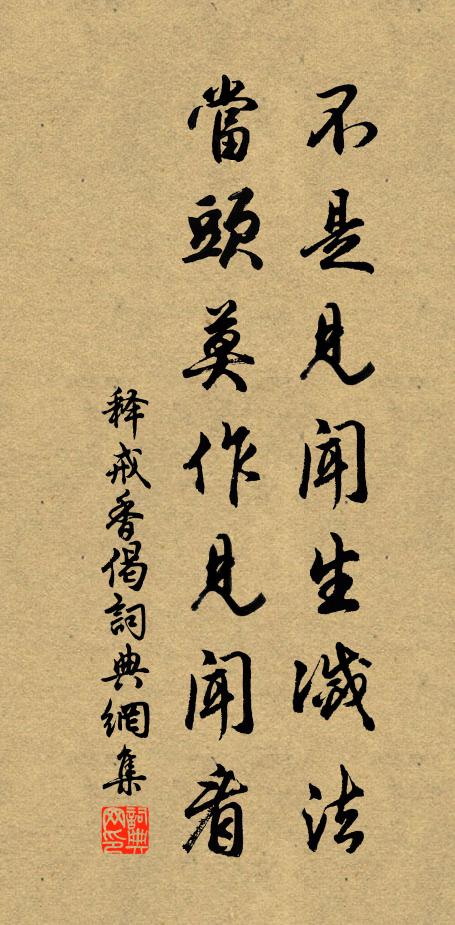 不是見聞生滅法
當頭莫作見聞看
释戒香偈詞典網集
詞典網印